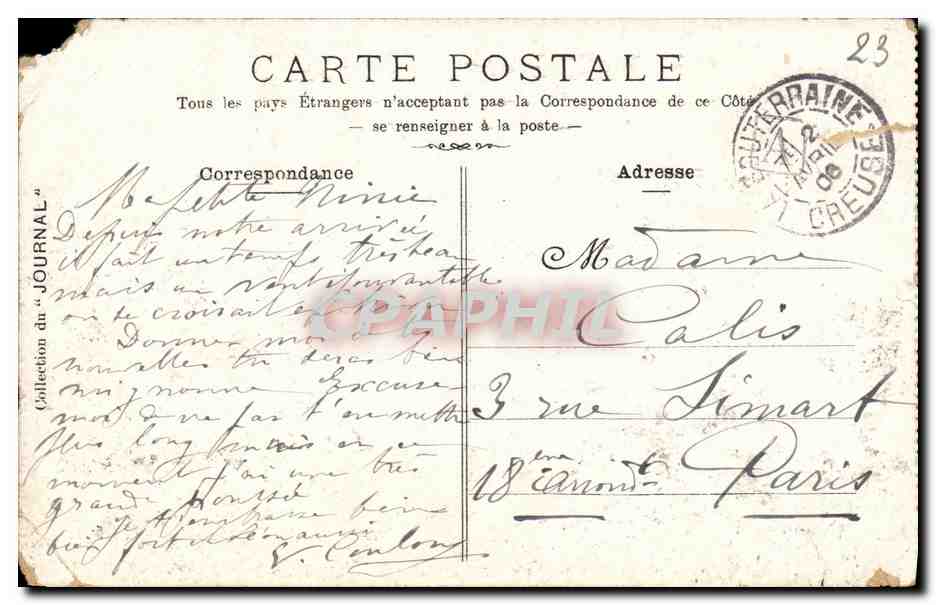 23
CARTE POSTALE
Tous les pays Étrangers n'acceptant pas la Correspondance de ce Côté
— se renseigner à la poste —
Correspondance
Adresse
LA SOUTERRAINE
2
AVRIL
06
CREUSE
Collection du "JOURNAL"
Ma petite Ninie
Depuis notre arrivée
il fait un temps très beau
mais un vent épouvantable
on se croisait
Donnes moi de
nouvelles tu seras bien
mignonne Excuse
moi de ne pas t'en mettre
plus long mais en ce
moment j'ai une très
grande
Je t'embrasse bien
bien fort
V. Coulon
Madame
Calis
3 rue Simart
18ème arrondt
Paris
CPAPHIL